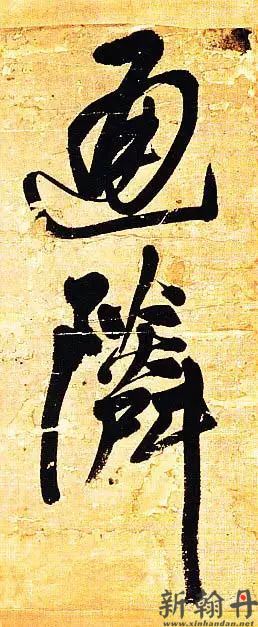 画
隣
新翰丹
www.xinhandan.net